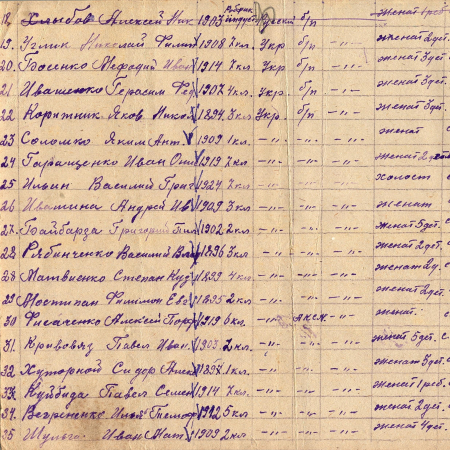 18. Хлыбов Алексей Ник 1903 русский б/п женат 1 реб.
19. Углик Николай Фили 1908 7 кл. Укр б/п -"- женат 2 дет.
20. Босенко Мефодий Иван 1914 7 кл. Укр б/п -"- женат 3 дет.
21. Иващенко Герасим Фед 1907 4 кл. Укр. б/п -"- женат 3 дет.
22 Коритник Яков Никол 1894 3 кл Укр. б/п -"- женат 3 дет.
23 Соломко Яким Ант. 1909 1 кл. -"- -"- -"- женат
24 Таращенко Иван 1919 7 кл -"- -"- -"- женат 2 дет
25 Ильин Василий Григ 1924 7 кл -"- -"- -"- холост
26 Ивашина Андрей Ив 1909 3 кл -"- -"- -"- женат
27. Байбарза Григорий 1902 2 кл -"- -"- -"- женат 5 дет.
28 Рябинченко Василий Вла 1896 3 кл -"- -"- -"- женат 2 дет.
28 Матвиенко Степан Куз 1899 4 кл -"- -"- -"- женат 2 д.
29 Мостипан Филимон Евг 1895 2 кл -"- -"- -"- женат 2 дет.
30 Алексей 1919 6 кл. -"- -"- женат.
31. Кривовяз Павел Иван. 1903 2 кл. -"- -"- -"- женат 5 дет.
32. Хуторной Сидор Алек 1897 1 кл. -"- -"- -"- женат 3 дет.
33. Куйбида Павел Семен 1914 7 кл. -"- -"- -"- женат 1 реб.
34. Илья 1912 5 кл -"- -"- -"- женат 2 дет.
35 Шульга Иван Мат 1909 2 кл -"- -"- -"- женат 4 дет.